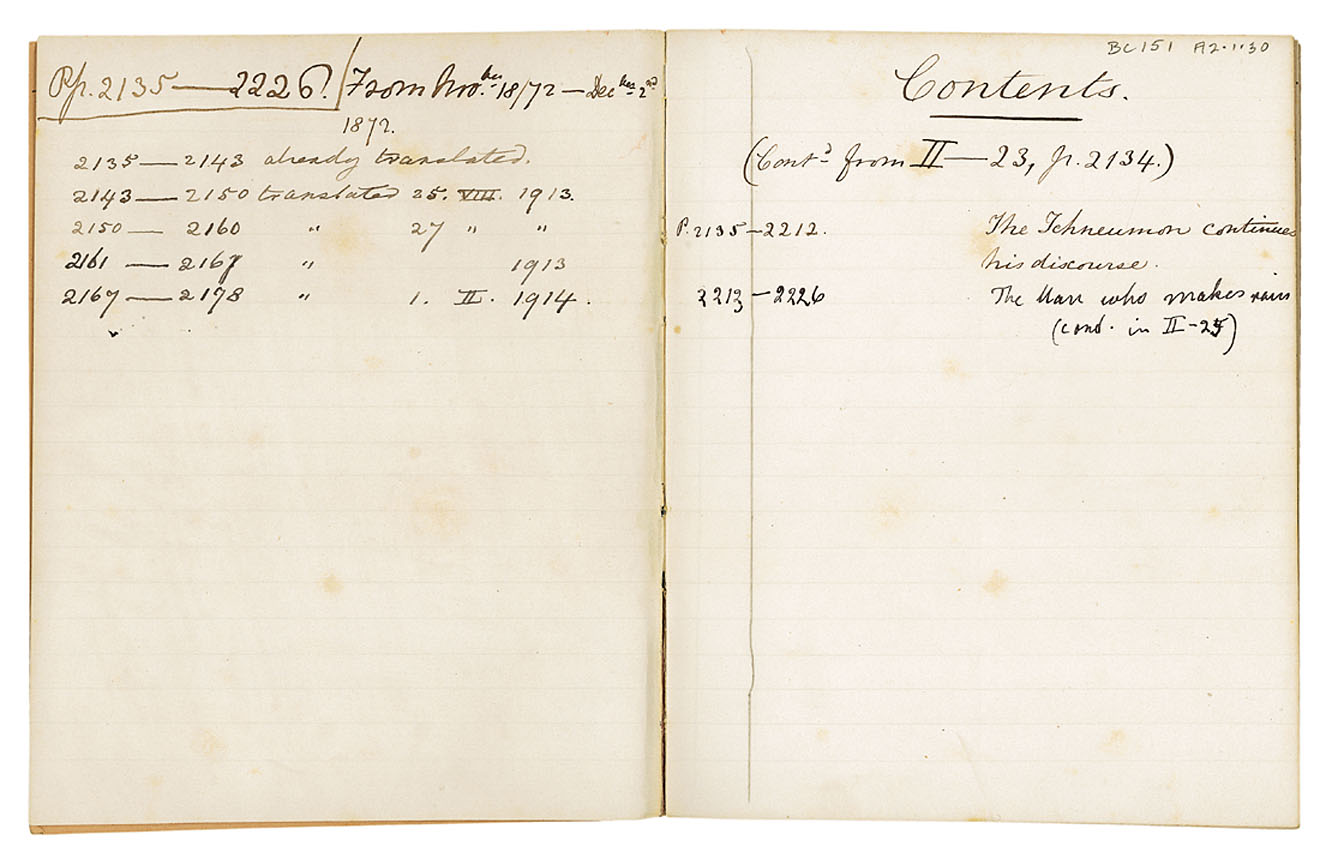 Pp. 2135—2226. From Novber 18/72—Decber 2nd
1872.
2135—2143 already translated.
2143—2150 translated 25. VIII. 1913.
2150—2160 " 27 " "
2161—2167 " 1913
2167—2178 " 1. II. 1914.
BC151 A2.1.30
Contents.
(Contd from II—23, p. 2134.)
P. 2135—2212. The Ichneumon continues
his discourse.
2213—2226 The Man who makes rain
(cond. in II-25)